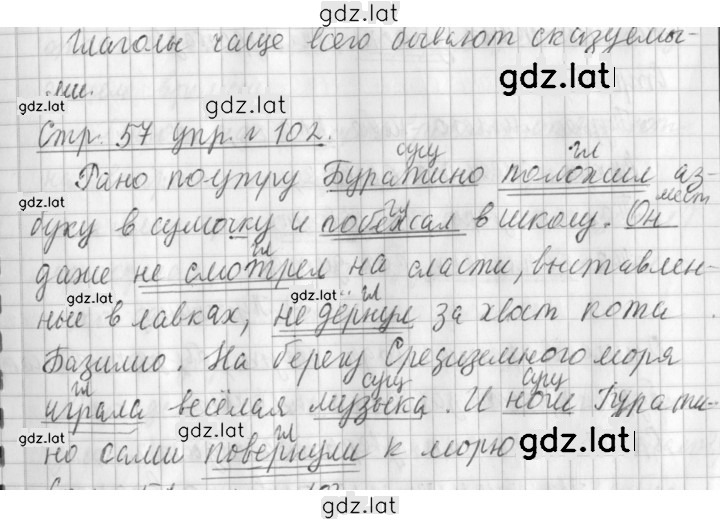 gdz.lat
Глаголы чаще всего бывают сказуемы-
ми.
gdz.lat
gdz.lat gdz.lat
Стр. 57 упр. № 102.
сущ гл
Рано поутру Буратино положил аз-
gdz.lat гл мест
буку в сумочку и побежал в школу. Он
gdz.lat гл gdz.lat
даже не смотрел на сласти, выставлен-
gdz.lat gdz.lat гл
ные в лавках, не дёрнул за хвост кота
Базилио. На берегу Средиземного моря
гл сущ сущ
играла весёлая музыка. И ноги Бурати-
gdz.lat gdz.lat гл gdz.lat
но сами повернули к морю
gdz.lat